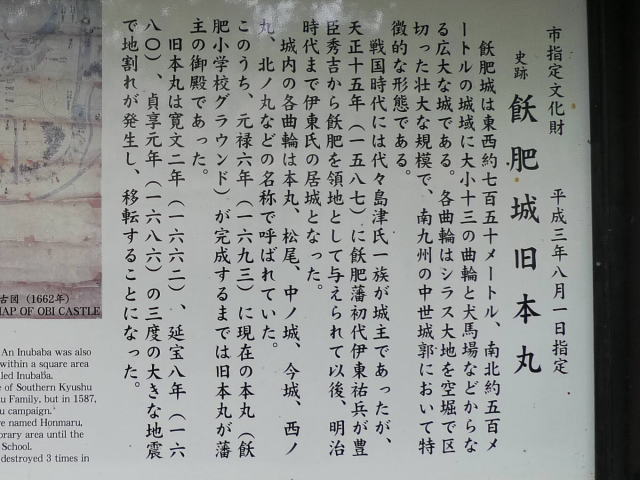 市指定文化財　平成三年八月一日指定
史跡　飫肥城旧本丸
飫肥城は東西約七百五十メートル、南北約五百メ
ートルの城域に大小十三の曲輪と犬馬場などからな
る広大な城である。各曲輪はシラス大地を空堀で区
切った壮大な規模で、南九州の中世城郭において特
徴的な形態である。
戦国時代には代々島津氏一族が城主であったが、
天正十五年（一五八七）に飫肥藩初代伊東祐兵が豊
臣秀吉から飫肥を領地として与えられて以後、明治
時代まで伊東氏の居城となった。
城内の各曲輪は本丸、松尾、中ノ城、今城、西ノ
丸、北ノ丸などの名称で呼ばれていた。
このうち、元禄六年（一六九三）に現在の本丸（飫
肥小学校グラウンド）が完成するまでは旧本丸が藩
主の御殿であった。
旧本丸は寛文二年（一六六二）、延宝八年（一六
八〇）、貞享元年（一六八六）の三度の大きな地震
で地割れが発生し、移転することになった。
古図（1662年）
MAP OF OBI CASTLE
An Inubaba was also
within a square area
lled Inubaba.
e of Southern Kyushu
u Family, but in 1587,
u campaign.'
re named Honmaru,
orary area until the
School.
destroyed 3 times in